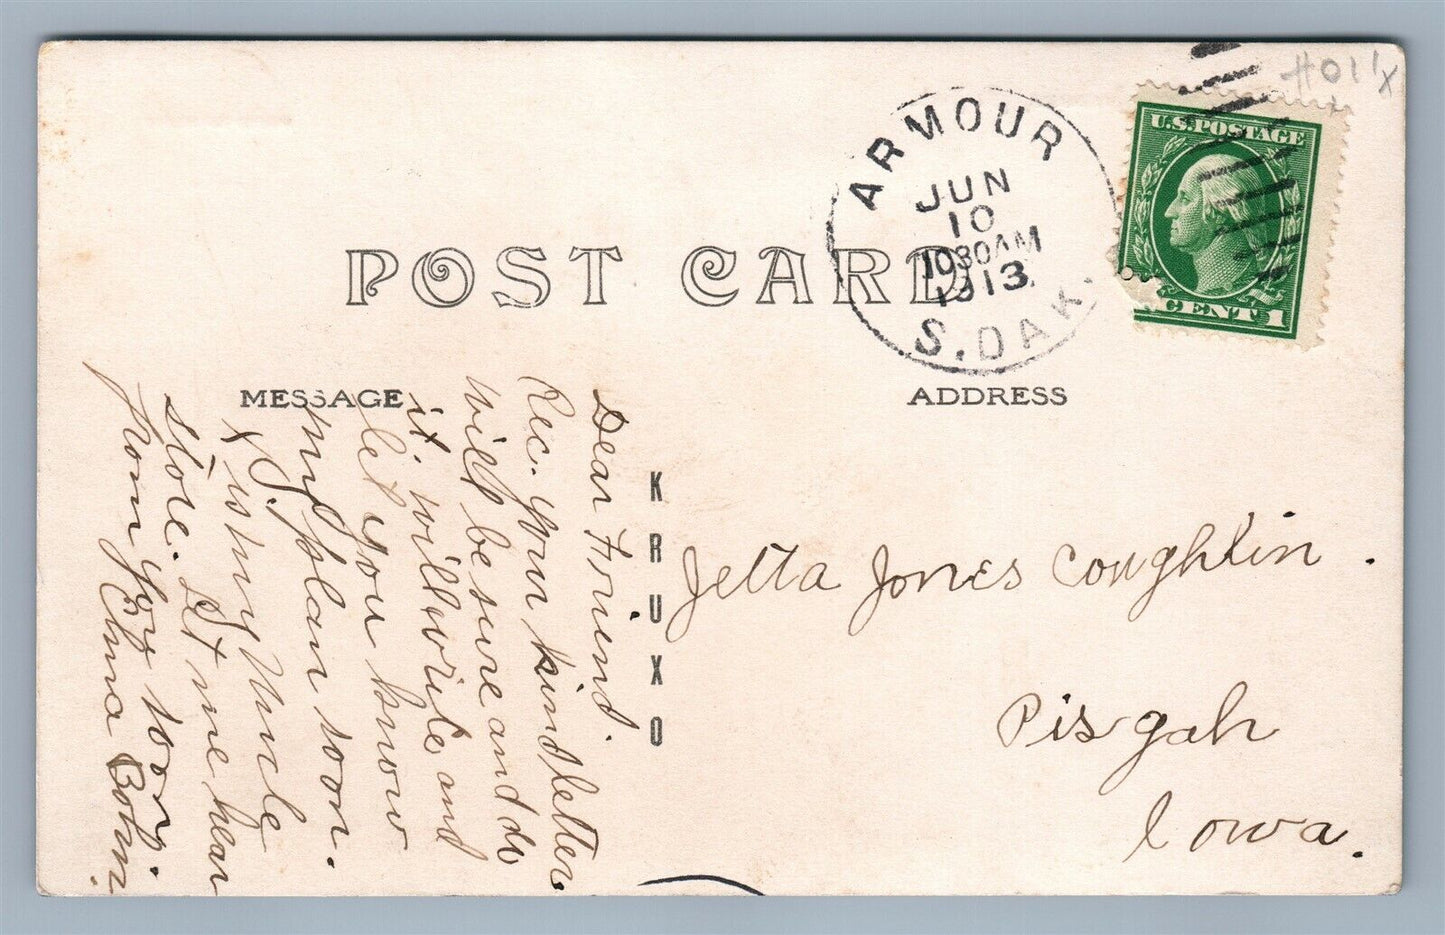 #011x
U.S. POSTAGE
CENT 1
ARMOUR
JUN
10
1030AM
1913
S. DAK.
POST CARD
MESSAGE
ADDRESS
KRUXO
Dear Friend.
Rec. your kind letter
will be sure and do
it. will write and
let you know
my plan soon.
X is my Uncle
store. Let me hear
from you soon.
Elma Bohn.
Jetta Jones Coughlin.
Pisgah
Iowa.